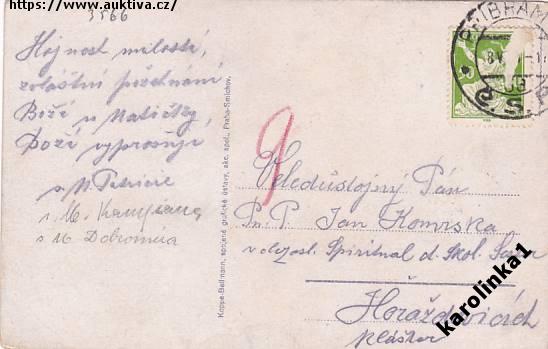 https://www.auktiva.cz/
3566
Hojnost milostí,
zvláštní požehnání
Boží a Matičky
Boží vyprošuje
s M. Patricie
s. M. Kampiana
s M Dobromíra
Koppe-Bellmann, spojené grafické ústavy, akc. spol., Praha-Smíchov.
9
PŘÍBRAM
Veledůstojný Pán
Pn. P. Jan
Spirituál d. Škol. Sester
Horažďovicích
Klášter
karolinka1